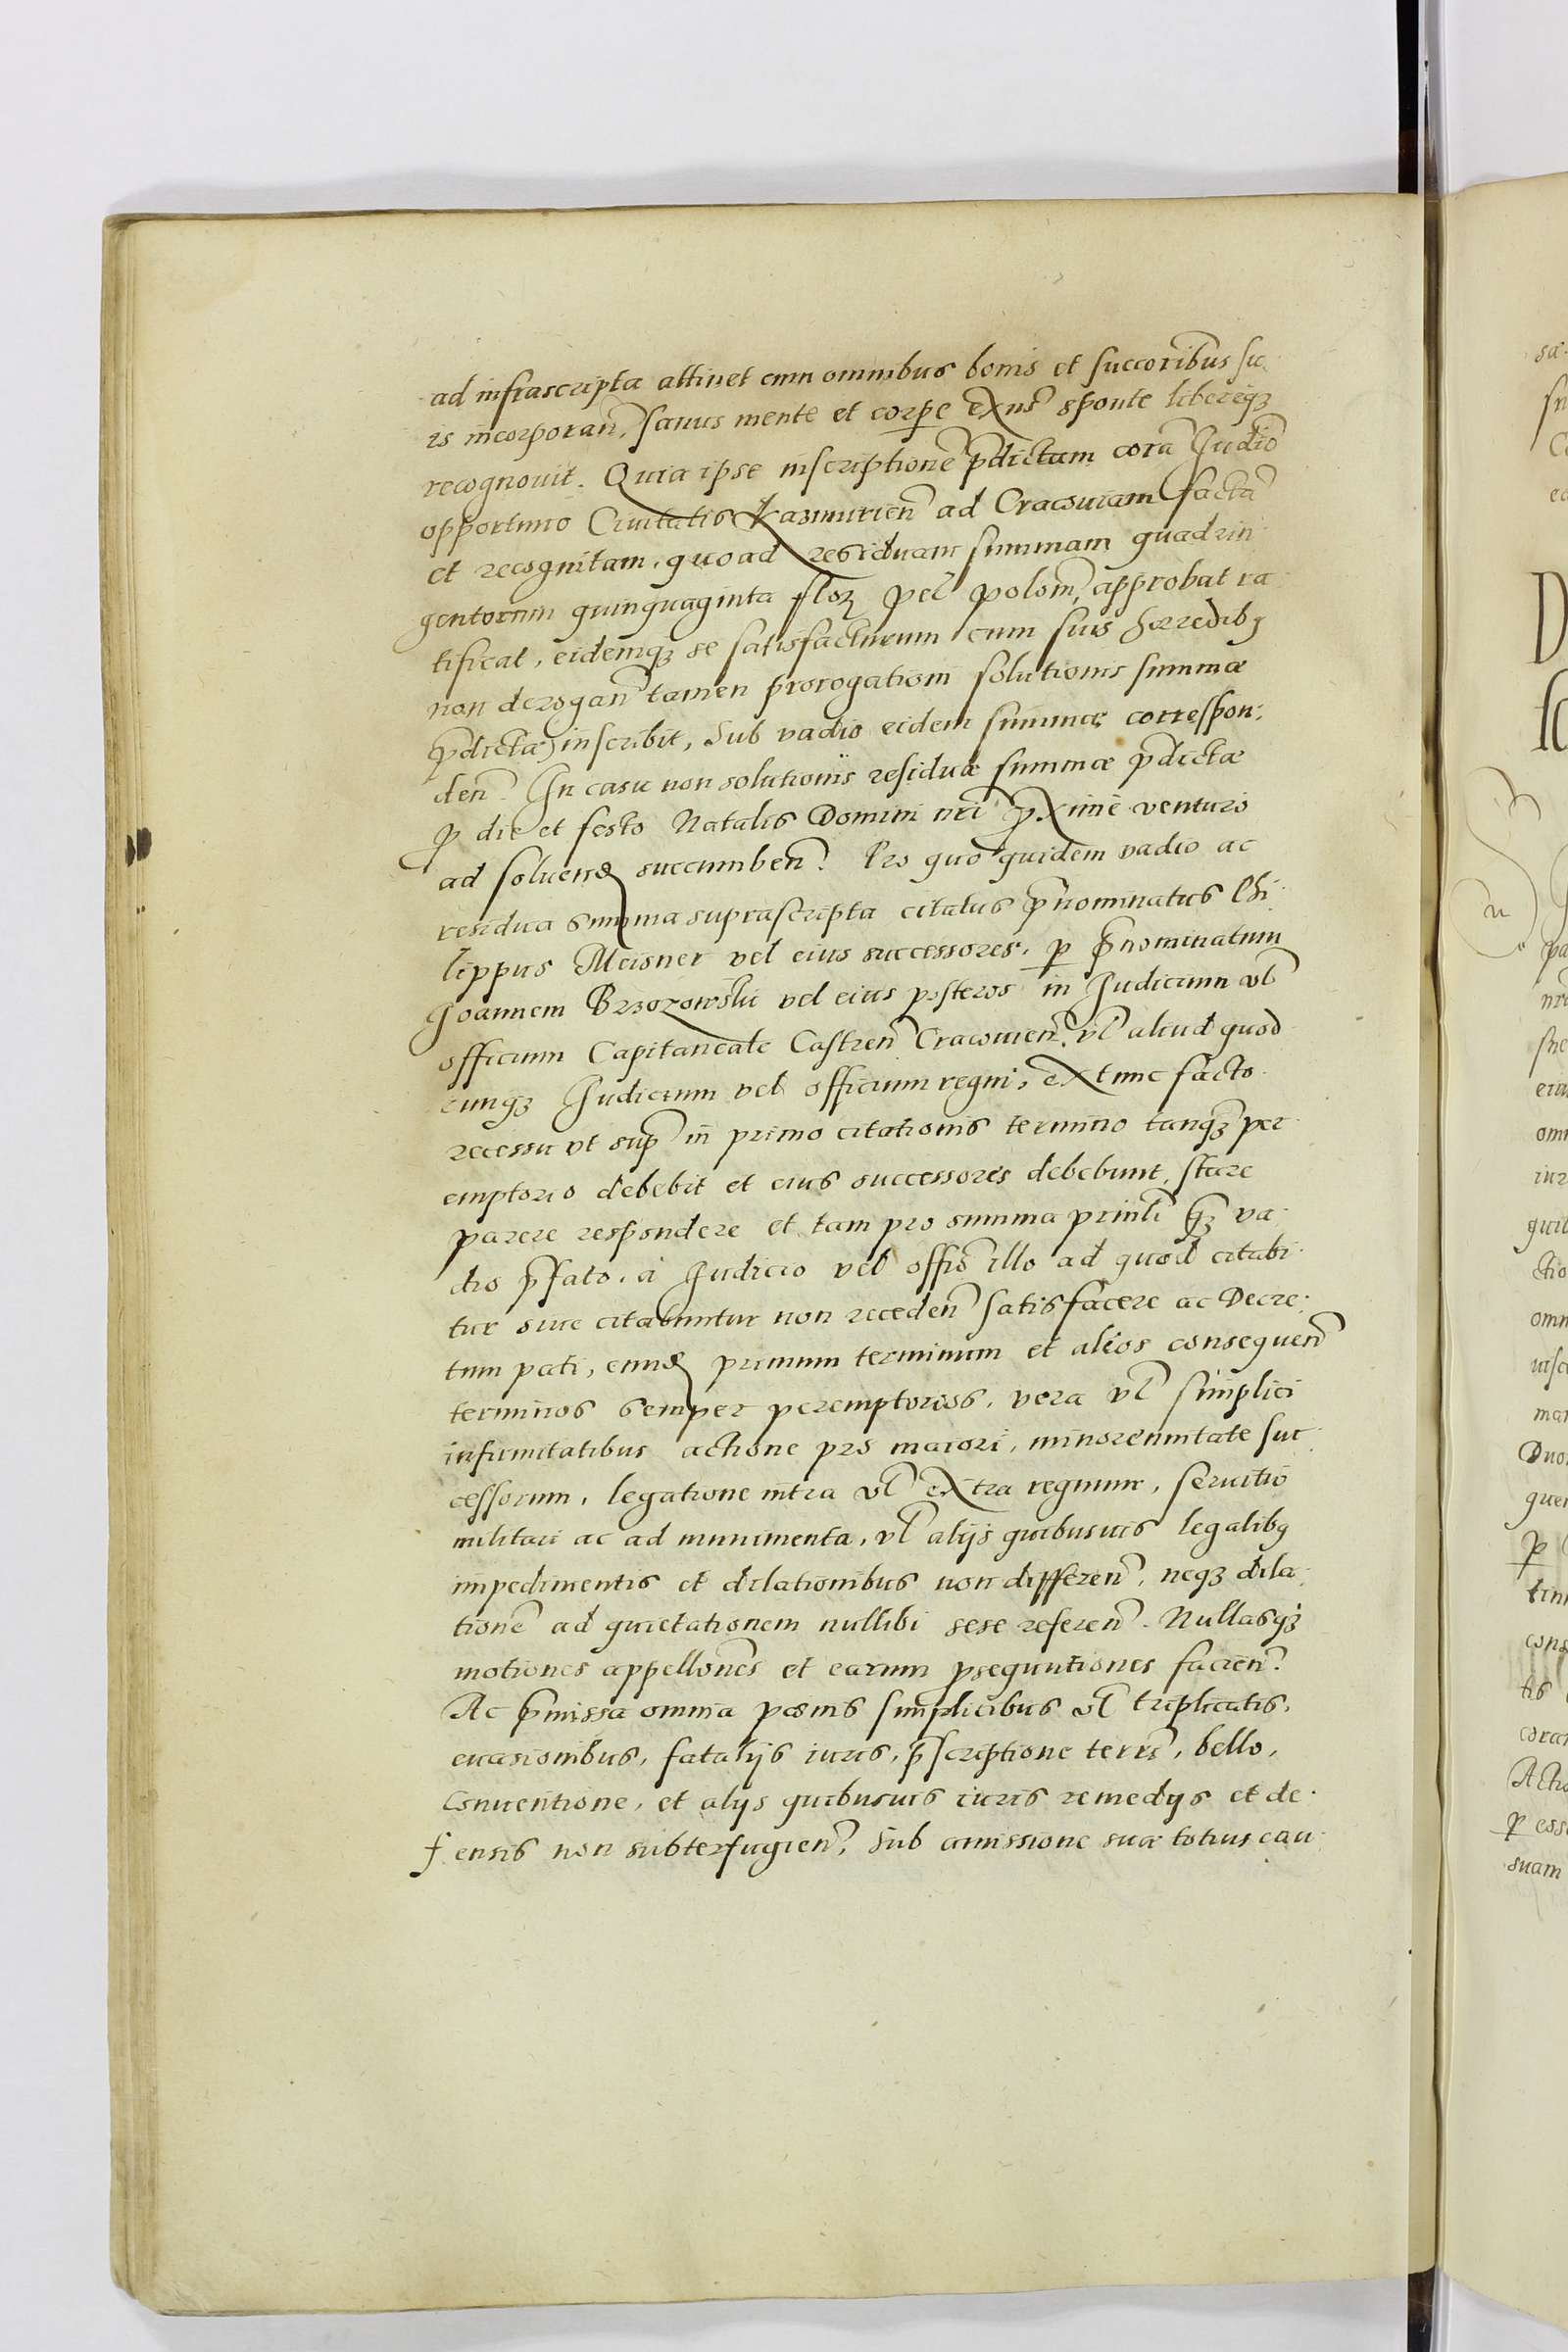 ad infrascripta attinet cum omnibus bonis et succoribus su
is incorporan̄, sanus mente et corpe exn̄s sponte libereqȝ
recognovit. Quia ipse inscriptionē p̄dictam corā Judio
opportuno Civitatis Kazmirien̄ ad Cracoviam factā
et recognitam, quo ad residuam summam quadrin
gentorum quinquaginta floꝝ pel̄ polom̄, approbat ra
tificat, eidemqȝ se satisfacturum cum suis hæredibȝ
non derogan̄ tamen prorogationi solutionis summæ
p̄dictæ) inscribit, Sub vadio eidem summæ correspon:
den̄. In casu non solutionis residuæ summæ p̄dictæ
ꝓ die et festo Natalis Domini nr̄i ꝓxime venturo
ad solvend succumben̄. Pro quo quidem vadio ac
residua summa suprascripta citatus p̄nominatus Phi
lippus Meisner vel eius successores, ꝑ p̄nominatum
Joannem Brzozowski vel eius posteros in Judicium vl̄
officium Capitaneale Castren̄ Cracovien̄, vl̄ aliud quod
cunqȝ Judicium vel officium regni, ex tunc facto
recessu vt sup̄ in primo citationis termino tanqȝ per
emptorio debebit et eius successores debebunt, stare
parere respondere et tam pro summa prinli qȝ va
dio p̄fato, à Judicio vel offio illo ad quod citabi
tur sive citabuntur non receden̄ satisfacere ac Decre:
tum pati, eund primum terminum et alios consequen̄
terminos semper peremptorios, vera vl̄ simplici
infirmitatibus actione pro maiori, minorennitate suc
cessorum, legatione intra vl̄ extra regnum, servitio
militari ac ad munimenta, vl̄ alijs quibusvis legalibȝ
impedimentis et dilationibus non differen̄, neqȝ dila
tionē ad quietationem nullibi sese referen̄. Nullasqȝ
motiones appellones et earum ꝓsequutiones facien̄.
Ac p̄missa omnia pœnis simplicibus vl̄ triplicatis,
evasionibus, fatalijs iuris, p̄scriptione terri, bello,
Conventione, et alijs quibusvis iuris remedijs et de
fensis non subterfugien̄, Sub amissione suæ totius cau